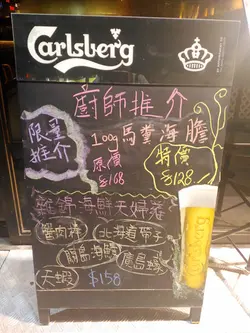 Carlsberg
廚師推介
限量
推介
100g 馬糞海膽
原價
$168
特價
$128
雜錦海鮮天婦羅
蟹肉棒
北海道帶子
廣島蠔
天蝦
$158